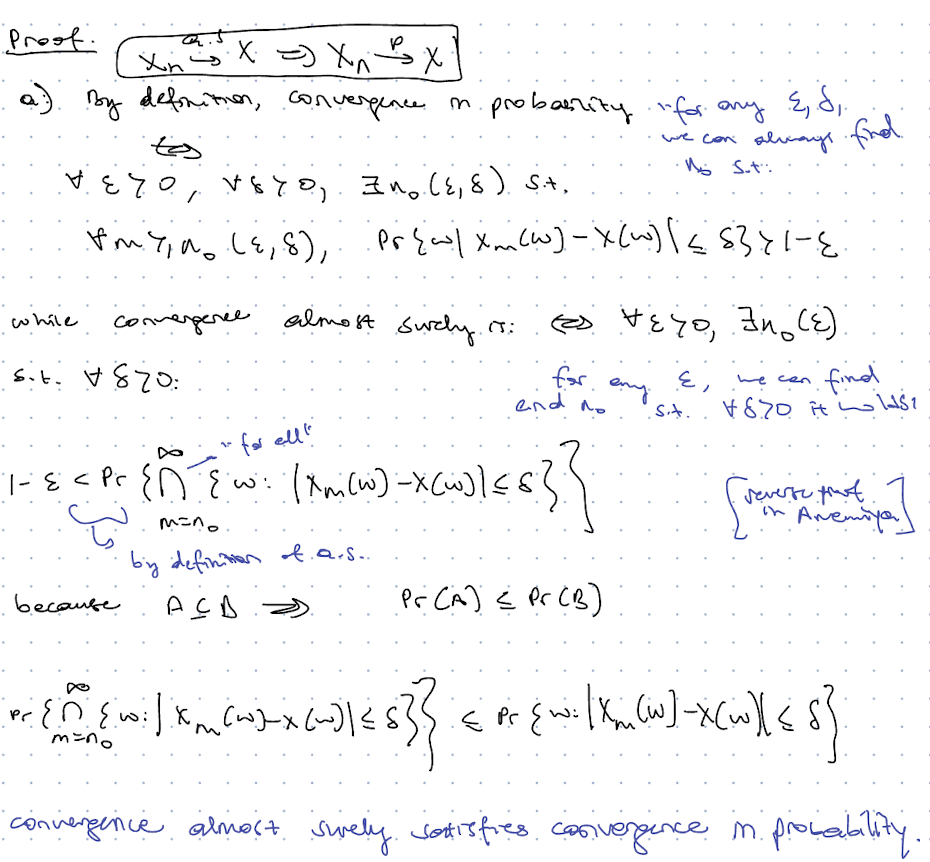 Proof. X_n →^{a.s} X ⇒ X_n →^{p} X
a.) By definition, convergence in probability "for any ε, δ,
we can always find
n_0 s.t.
⇔
∀ ε > 0, ∀ δ > 0, ∃ n_0 (ε, δ) s.t.
∀ m ≥ n_0 (ε, δ), Pr { ω | X_m(ω) - X(ω) | ≤ δ} > 1 - ε
while convergence almost surely is: ⇔ ∀ ε > 0, ∃ n_0 (ε)
s.t. ∀ δ > 0:
for any ε, we can find
and n_0 s.t. ∀ δ > 0 it holds!
"for all"
1 - ε < Pr { ∩_{m=n_0}^{∞} { ω: | X_m(ω) - X(ω) | ≤ δ } }
[reverse proof
in Amemiya]
by definition of a.s.
because A ⊆ B ⇒ Pr(A) ≤ Pr(B)
Pr { ∩_{m=n_0}^{∞} { ω: | X_m(ω) - X(ω) | ≤ δ } } ≤ Pr { ω: | X_m(ω) - X(ω) | ≤ δ }
convergence almost surely satisfies convergence in probability.